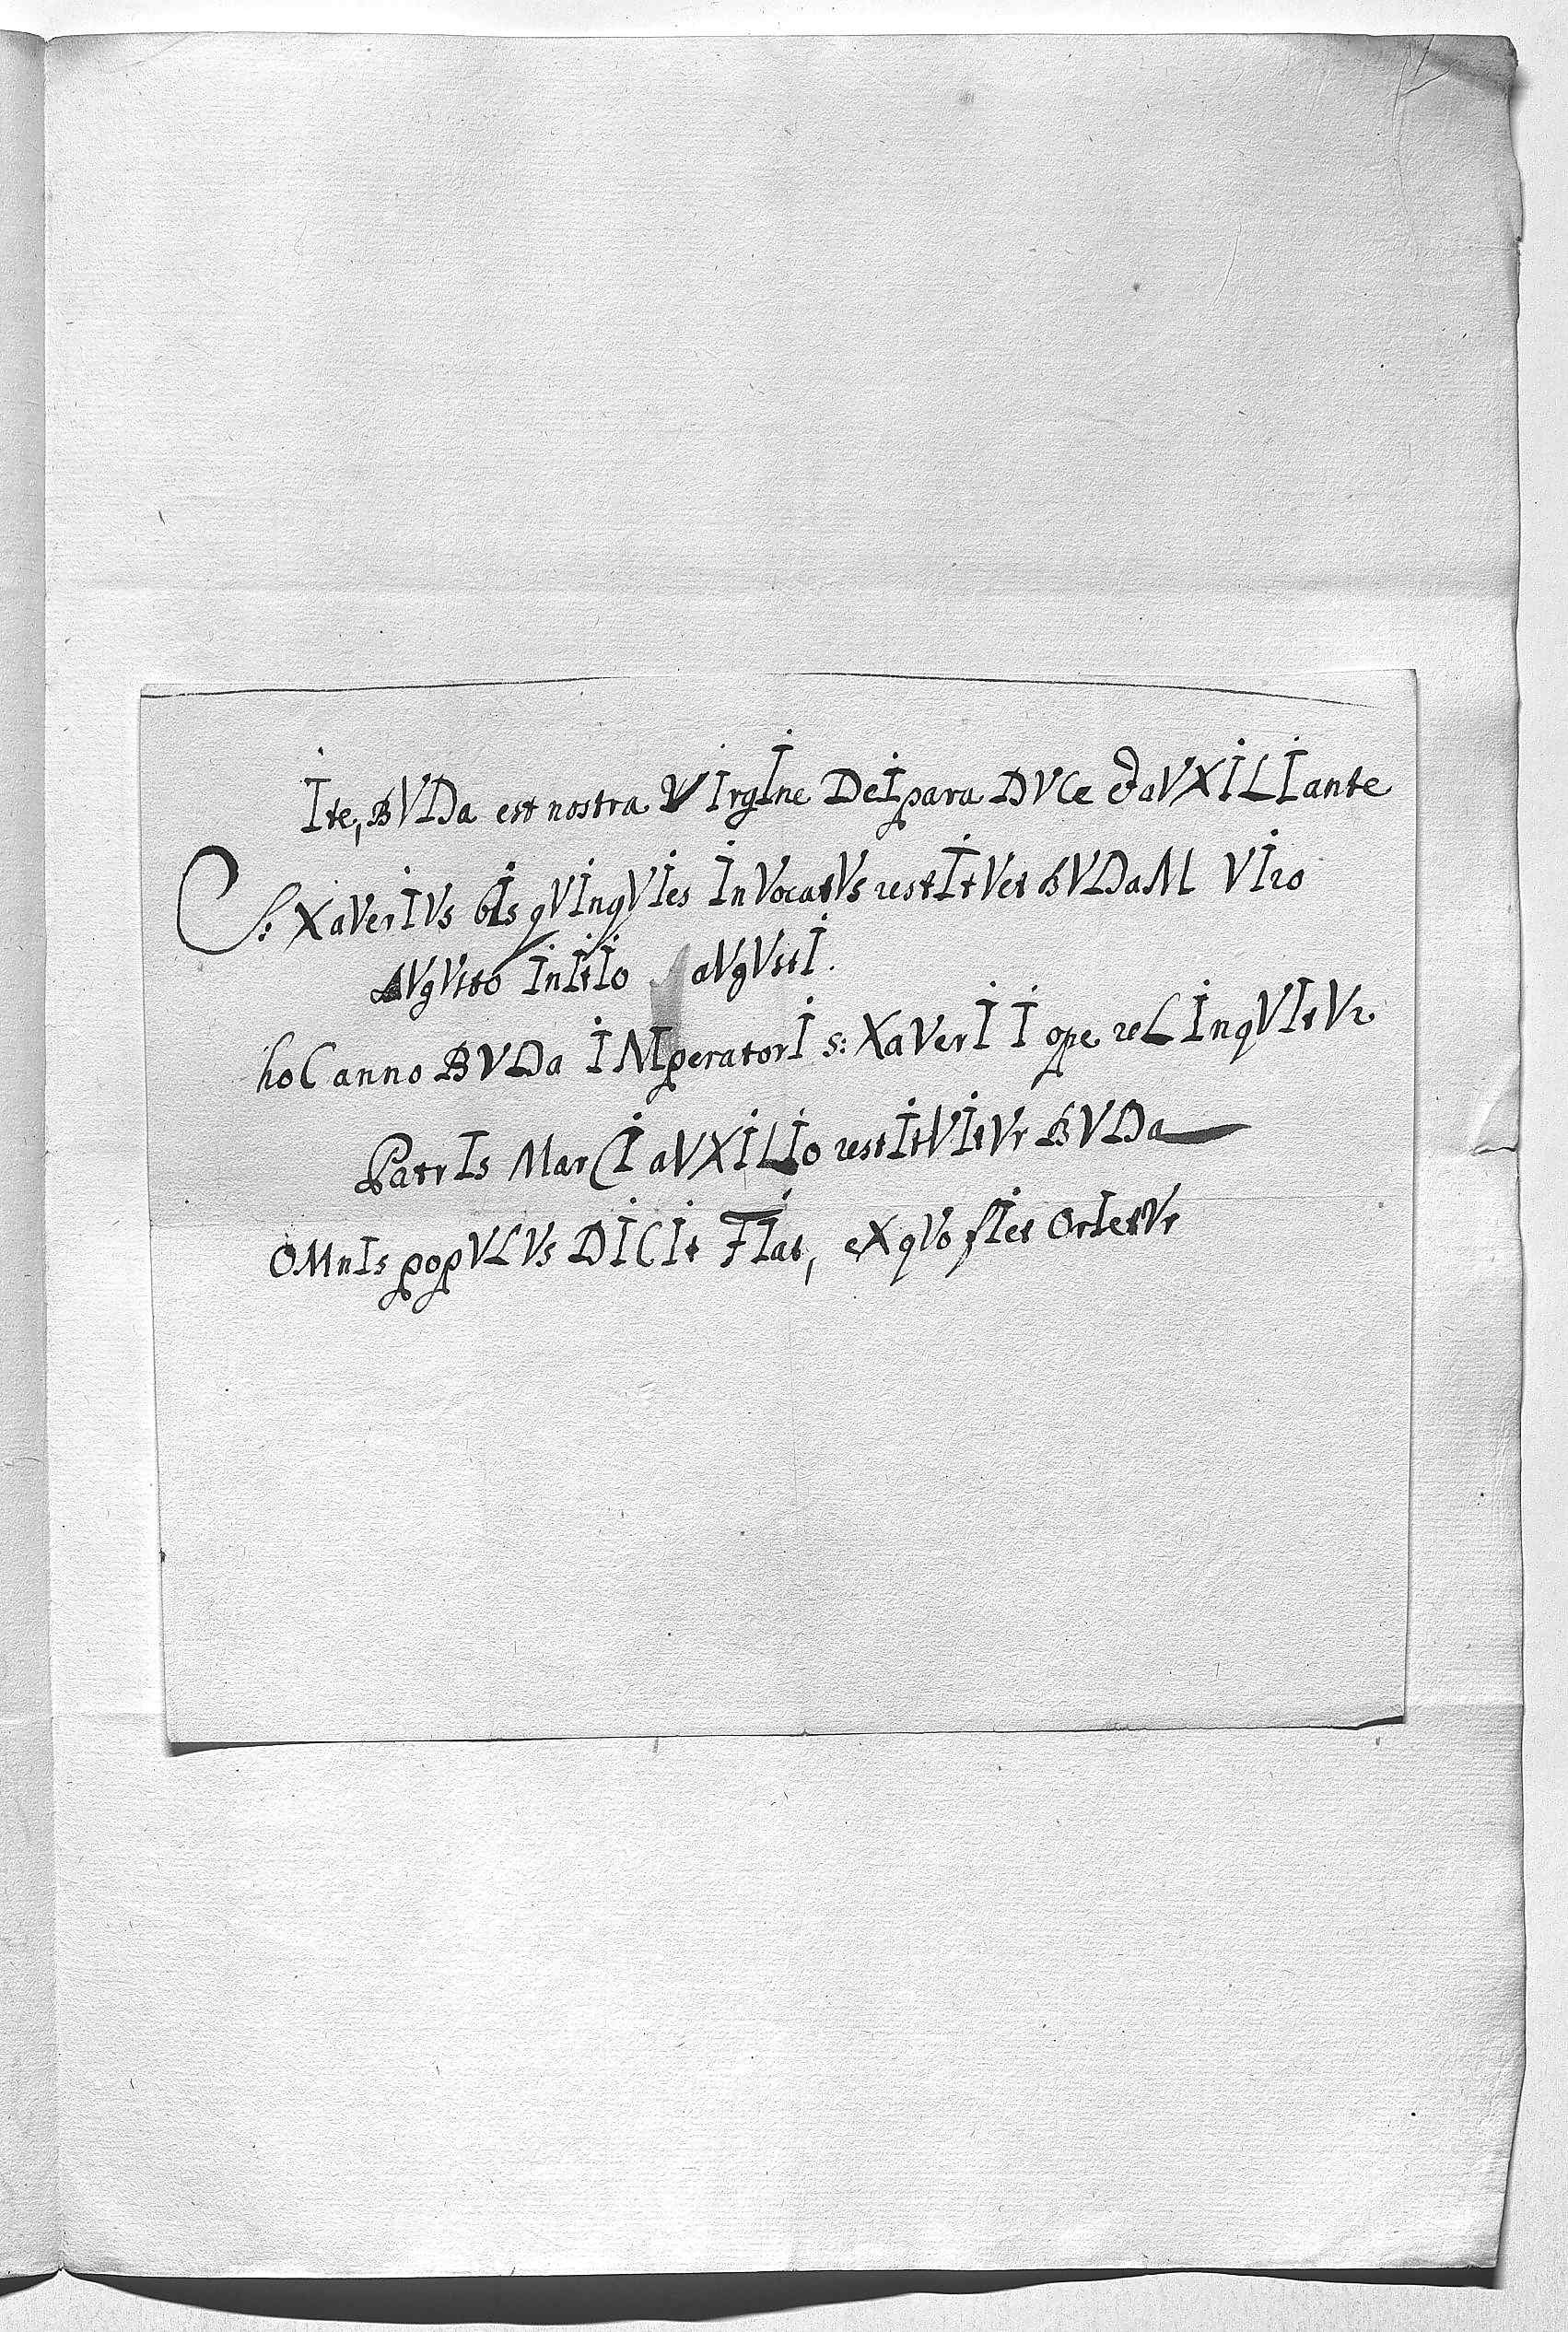 Ite, BVDa est nostra VIrgIne DeIpara DVCe & aVXILIante
S: XaVerIVs bIs qVInqVIes InVocatVs restItVet BVDaM VIro
AVgVsto InItIo aVgVstI.
hoC anno BVDa IMperatorI s: XaVerII ope reLInqVItVr
PatrIs MarCI aVXILIo restItVItVr BVDa
OMnIs popVLVs DICIt FIat, eXqVo fIet OrIetVr